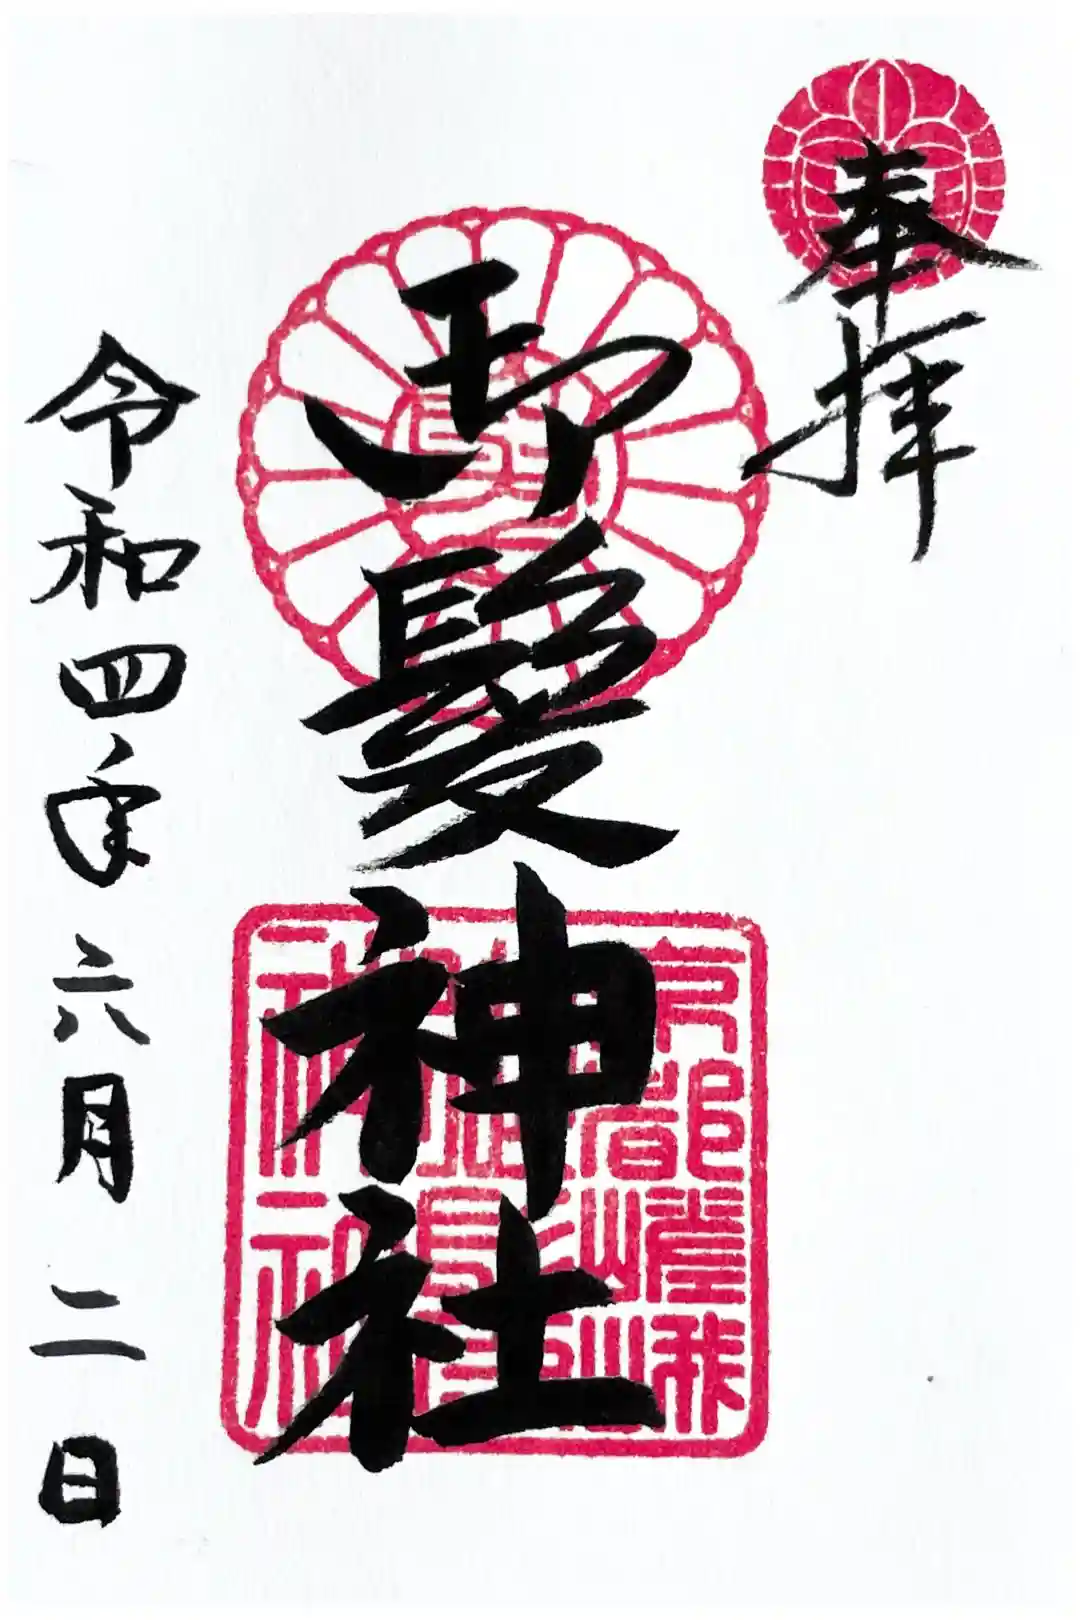 奉拝
御髪神社
令和四年六月二日
京都嵯峨
神社